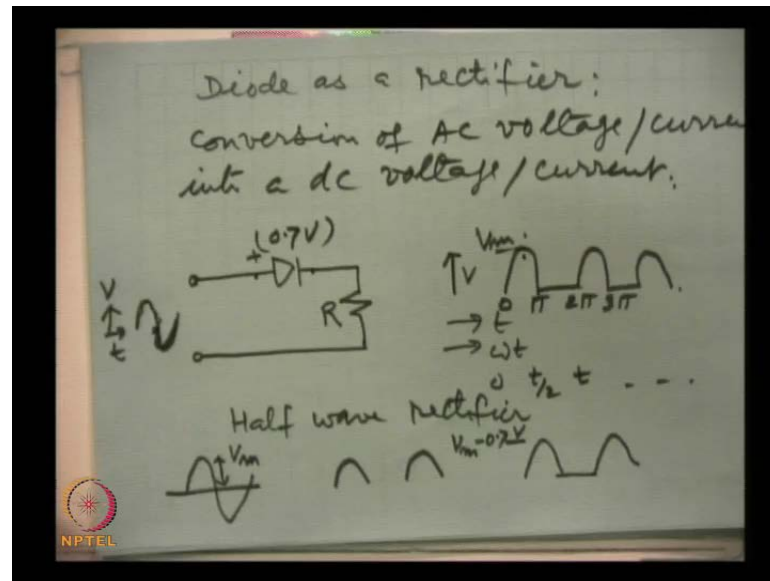 Diode as a rectifier:
conversion of AC voltage/curre
into a dc voltage/current.
(0.7V)
+
V
t
R
Vm
V
0 π 2π 3π
t
ωt
0 t/2 t - - -
Half wave rectifier
Vm
Vm-0.7V
NPTEL